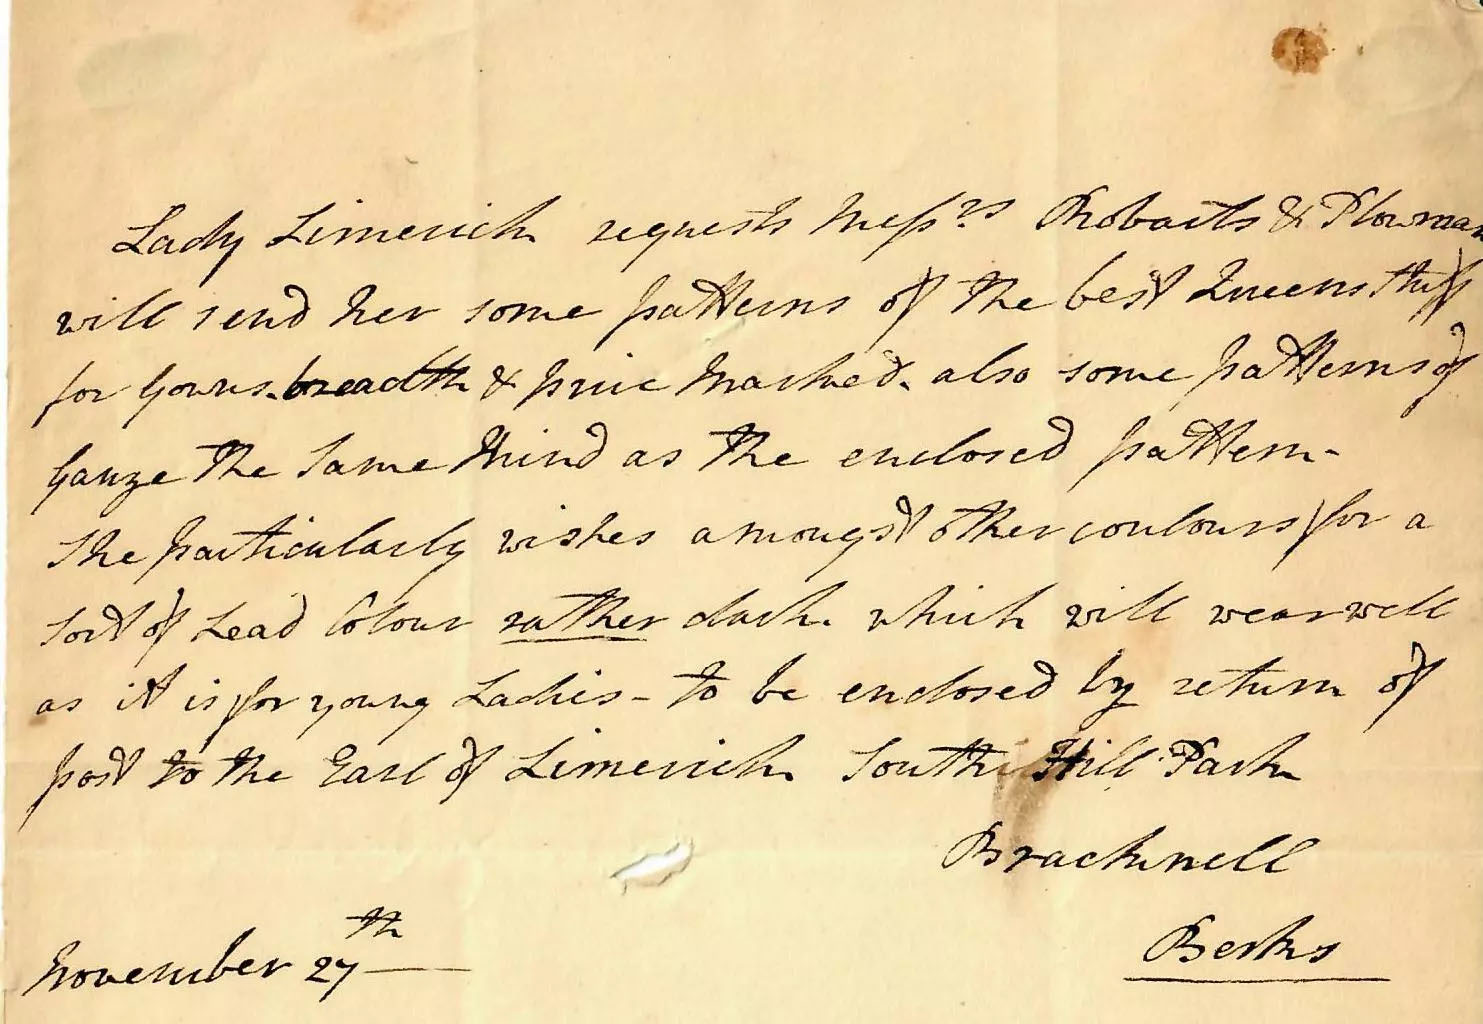 Lady Limerick requests Messrs Robarts & Plowman
will send her some patterns of the best Queens stuff
for Gowns. breadth & price marked. also some patterns of
Gauze the same Kind as the enclosed pattern-
She particularly wishes amongst other coulours for a
sort of Lead Colour rather dark. which will wear well
as it is for young Ladies - to be enclosed by return of
post to the Earl of Limerick. South Hill Park
Bracknell
Berks
November 27th